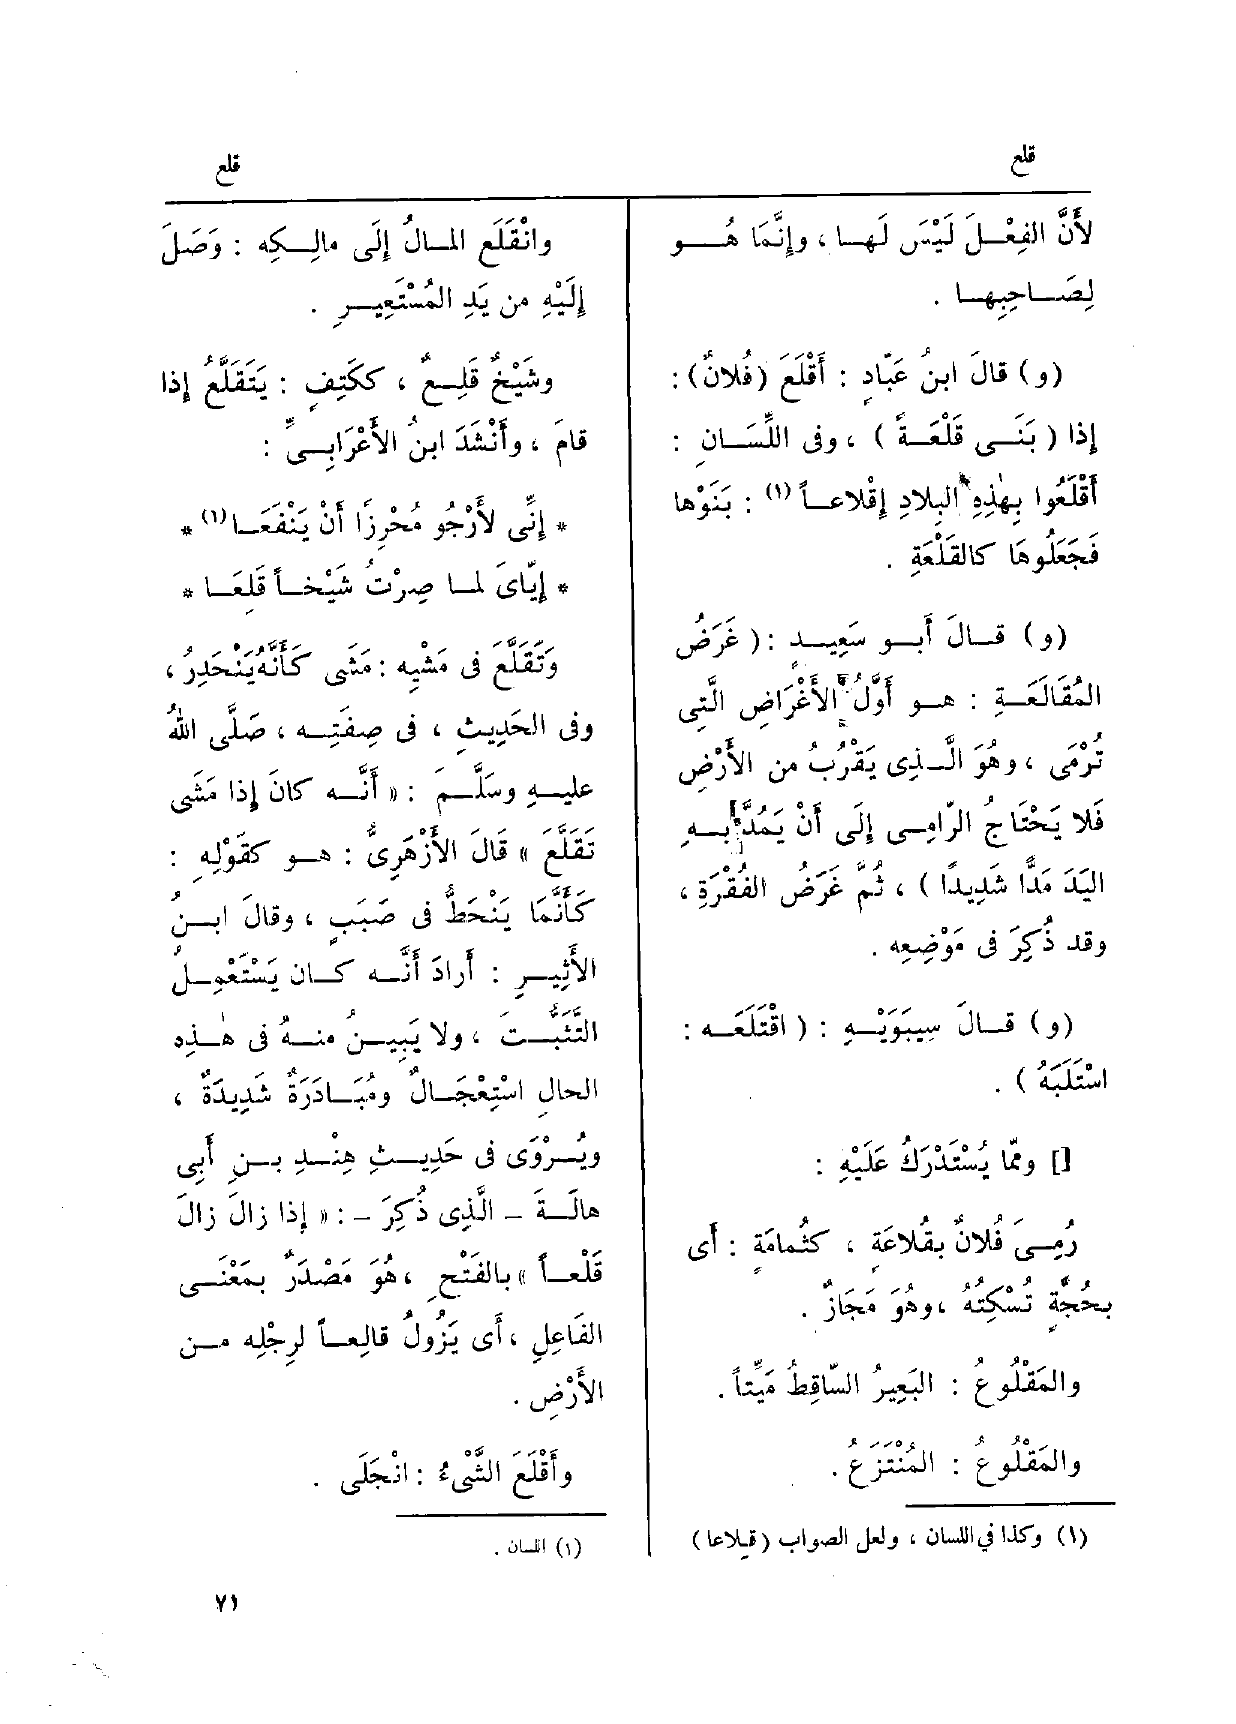 قلع
قلع
لأَنَّ الفِعْلَ لَيْسَ لَها ، وإِنَّمَا هُو
لِصَاحِبِها .
(و) قالَ ابنُ عَبّادٍ : أَقْلَعَ (فُلانٌ) :
إِذا ( بَنَى قَلْعَةً ) ، وفى اللِّسَانِ :
أَقْلَعُوا بِهٰذِهِ البِلادِ إِقْلاعاً (١) : بَنَوْها
فَجَعَلُوهَا كالقَلْعَةِ .
(و) قالَ أَبو سَعِيدٍ : ( غَرَضُ
المُقَالَعَةِ : هو أَوَّلُ الأَغْرَاضِ الَّتِى
تُرْمَى ، وهُوَ الَّذِى يَقْرُبُ من الأَرْضِ
فَلا يَحْتَاج الرّامِى إِلَى أَنْ يَمُدَّ به
اليَدَ مَدًّا شَدِيدًا ) ، ثُمَّ غَرَضُ الفُقْرَةِ ،
وقد ذُكِرَ فى مَوْضِعِه .
(و) قالَ سِيبَوَيْهِ : ( اقْتَلَعَه :
اسْتَلَبَهُ ) .
[] وممّا يُسْتَدْرَكُ عَلَيْهِ :
رُمِىَ فُلانٌ بقُلاعَةٍ ، كثُمامَةٍ : أَى
بحُجَّةٍ تُسْكِتُهُ ، وهُوَ مَجَازٌ .
والمَقْلُوعُ : البَعِيرُ السّاقِطُ مَيِّتاً .
والمَقْلُوعُ : المُنْتَزَعُ .
(١) وكذا فى اللسان ، ولعل الصواب (قيلاعا)
وانْقَلَع المالُ إِلَى مالِكِه : وَصَلَ
إِلَيْهِ من يَدِ المُسْتَعِيرِ .
وشَيْخٌ قَلِعٌ ، ككَتِفٍ : يَتَقَلَّعُ إِذا
قامَ ، وأَنْشَدَ ابنُ الأَعْرَابِىِّ :
* إِنِّى لأَرْجُو مُحْرِزًا أَنْ يَنْفَعَا (١) *
* إِيّاىَ لما صِرْتُ شَيْخاً قَلِعَا *
وتَقَلَّعَ فى مَشْيِه : مَشَى كَأَنَّهُ يَنْحَدِرُ ،
وفى الحَدِيثِ ، فى صِفَتِه ، صَلَّى اللهُ
عليهِ وسَلَّمَ : « أَنَّه كانَ إِذا مَشَى
تَقَلَّعَ » قالَ الأَزْهَرِىُّ : هو كقَوْلِهِ :
كَأَنَّمَا يَنْحَطُّ فى صَبَبٍ ، وقالَ ابنُ
الأَثِيرِ : أَرادَ أَنَّه كان يَسْتَعْمِلُ
التَّثَبُّتَ ، ولا يَبِينُ منهُ فى هٰذِه
الحالِ اسْتِعْجَالٌ ومُبَادَرَةٌ شَدِيدَةٌ ،
ويُرْوَى فى حَدِيثِ هِنْدِ بنِ أَبِى
هالَةَ - الَّذِى ذُكِرَ - : « إِذا زالَ زالَ
قَلْعاً » بالفَتْحِ ، هُوَ مَصْدَرٌ بمَعْنَى
الفَاعِلِ ، أَى يَزُولُ قالِعاً لرِجْلِه من
الأَرْضِ .
وأَقْلَعَ الشَّىءُ : انْجَلَى .
(١) اللسان .
٧١